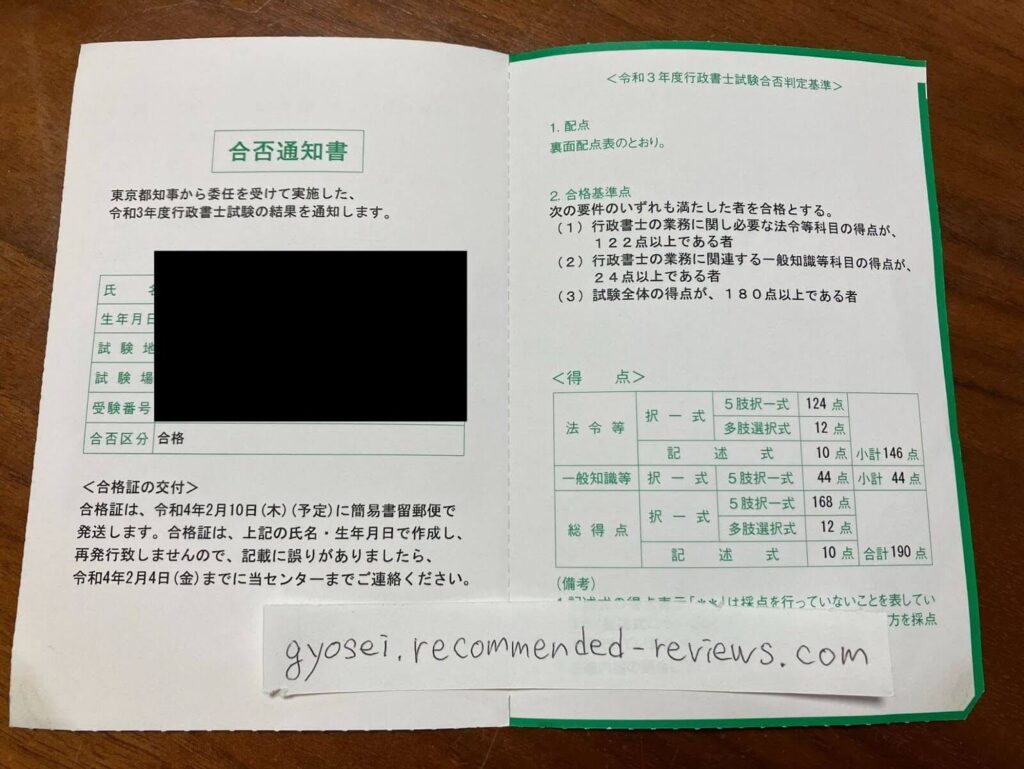 合否通知書
東京都知事から委任を受けて実施した、
令和3年度行政書士試験の結果を通知します。
氏
生年月日
試験地
試験場
受験番号
合否区分 合格
＜合格証の交付＞
合格証は、令和4年2月10日(木)(予定)に簡易書留郵便で
発送します。合格証は、上記の氏名・生年月日で作成し、
再発行致しませんので、記載に誤りがありましたら、
令和4年2月4日(金)までに当センターまでご連絡ください。
＜令和３年度行政書士試験合否判定基準＞
1. 配点
裏面配点表のとおり。
2. 合格基準点
次の要件のいずれも満たした者を合格とする。
（１）行政書士の業務に関し必要な法令等科目の得点が、
１２２点以上である者
（２）行政書士の業務に関連する一般知識等科目の得点が、
２４点以上である者
（３）試験全体の得点が、１８０点以上である者
＜得　点＞
法令等 択一式 ５肢択一式 124 点
多肢選択式 12 点
記述式 10 点 小計 146 点
一般知識等 択一式 ５肢択一式 44 点 小計 44 点
総得点 択一式 ５肢択一式 168 点
多肢選択式 12 点
記述式 10 点 合計 190 点
(備考)
1.記述式の得点表示「**」は採点を行っていないことを表してい
方を採点
gyosei.recommended-reviews.com